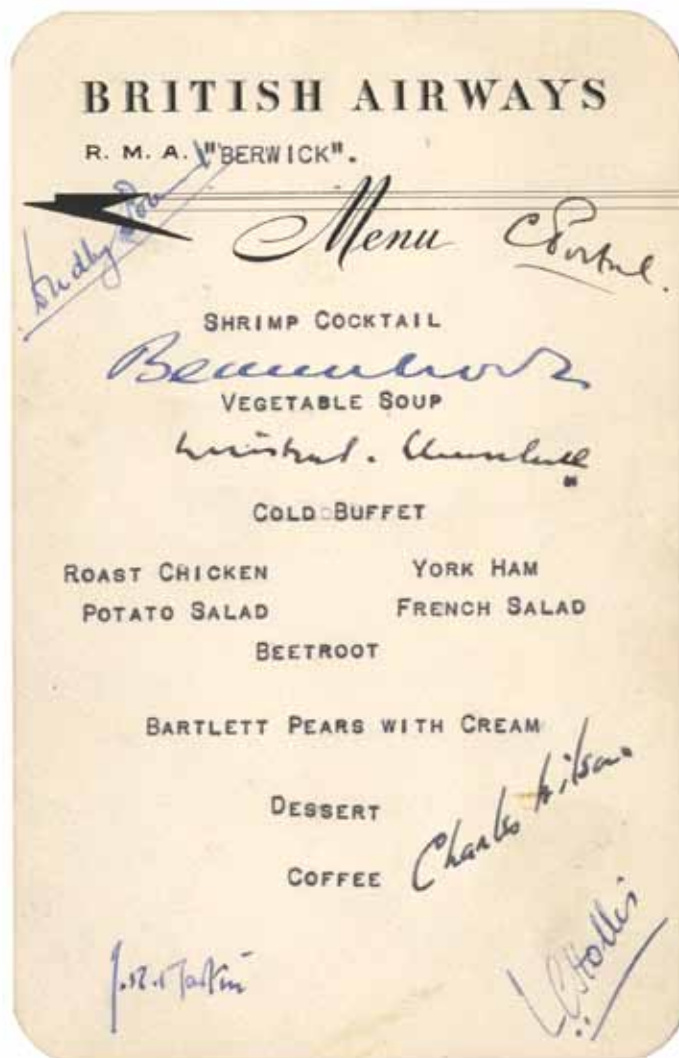 BRITISH AIRWAYS
R. M. A. "BERWICK".
Dudley Pound
Menu
C Portal.
SHRIMP COCKTAIL
Beaverbrook
VEGETABLE SOUP
Winston S. Churchill
COLD BUFFET
ROAST CHICKEN YORK HAM
POTATO SALAD FRENCH SALAD
BEETROOT
BARTLETT PEARS WITH CREAM
DESSERT
Charles Wilson
COFFEE
J. M. Martin
LC Hollis